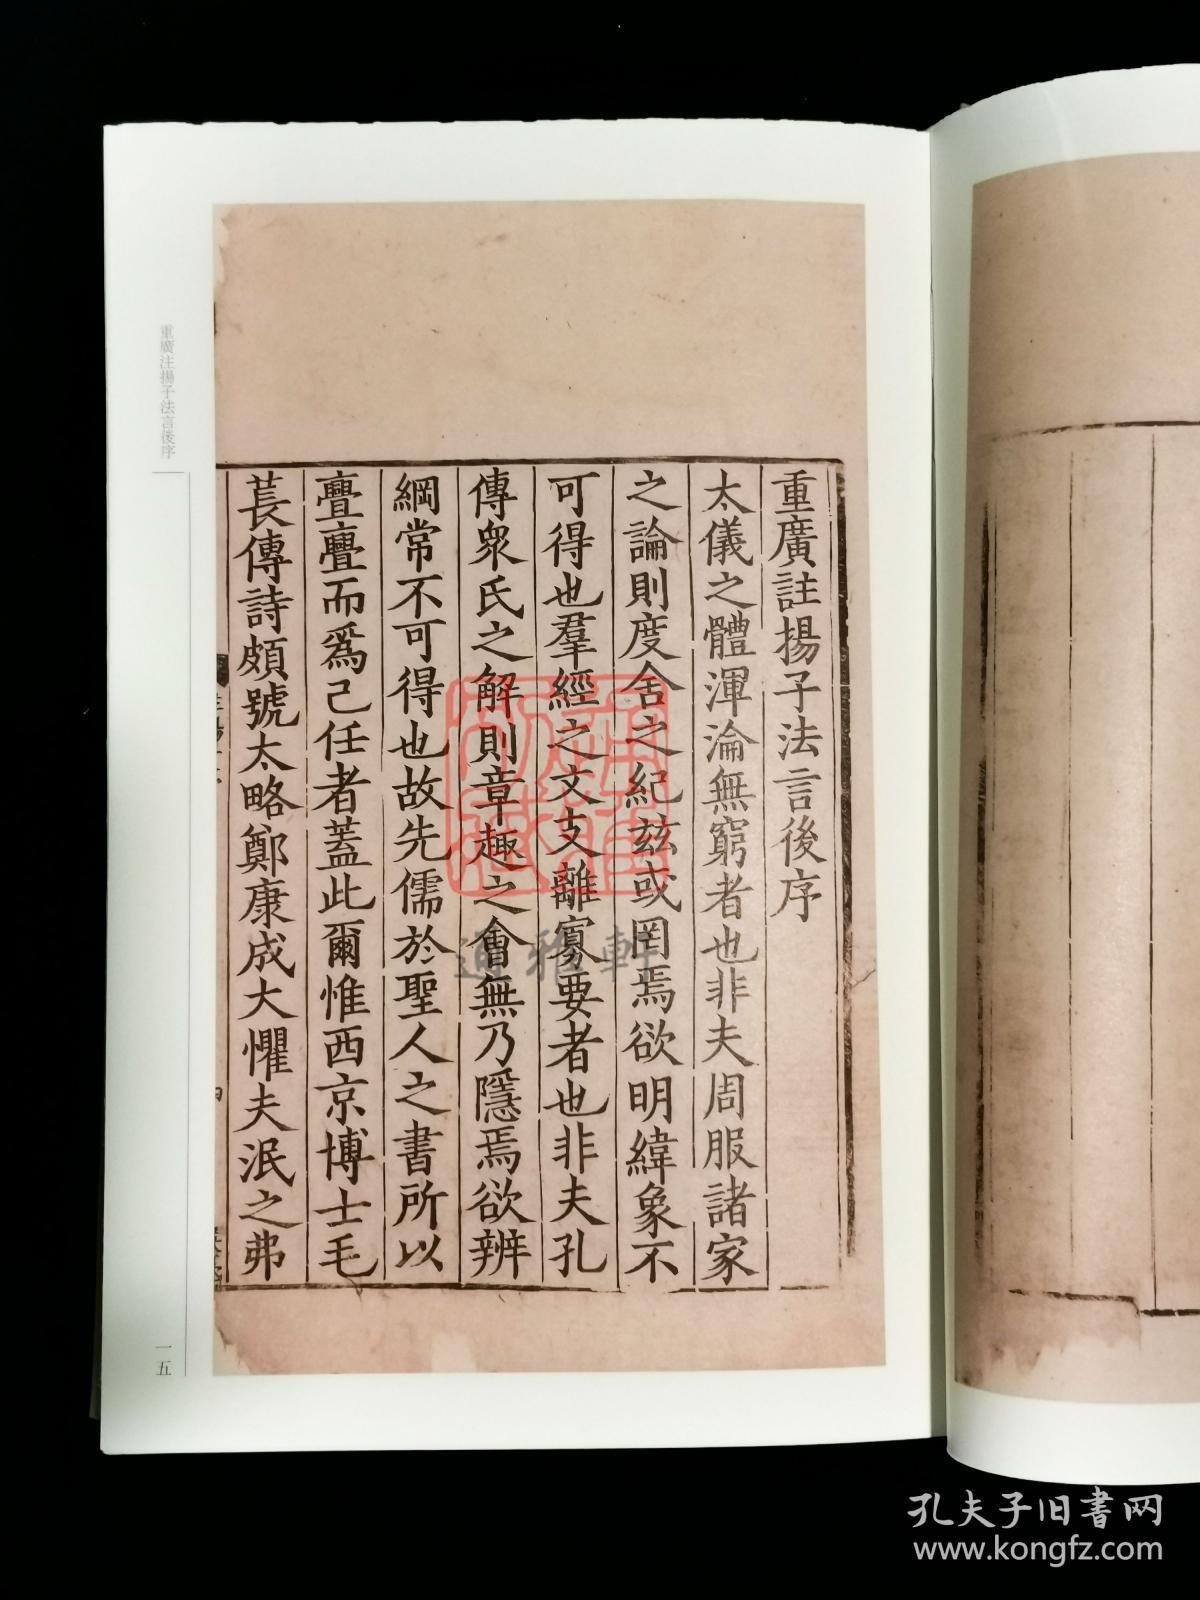 重廣註揚子法言後序
太儀之體渾淪無窮者也非夫周服諸家
之論則度舍之紀茲或罔焉欲明緯象不
可得也羣經之文支離寡要者也非夫孔
傳衆氏之解則章趣之會無乃隱焉欲辨
綱常不可得也故先儒於聖人之書所以
亹亹而爲己任者蓋此爾惟西京博士毛
萇傳詩頗號太略鄭康成大懼夫泯之弗
重廣注揚子法言後序
一五
通雅軒
孔夫子旧书网
www.kongfz.com